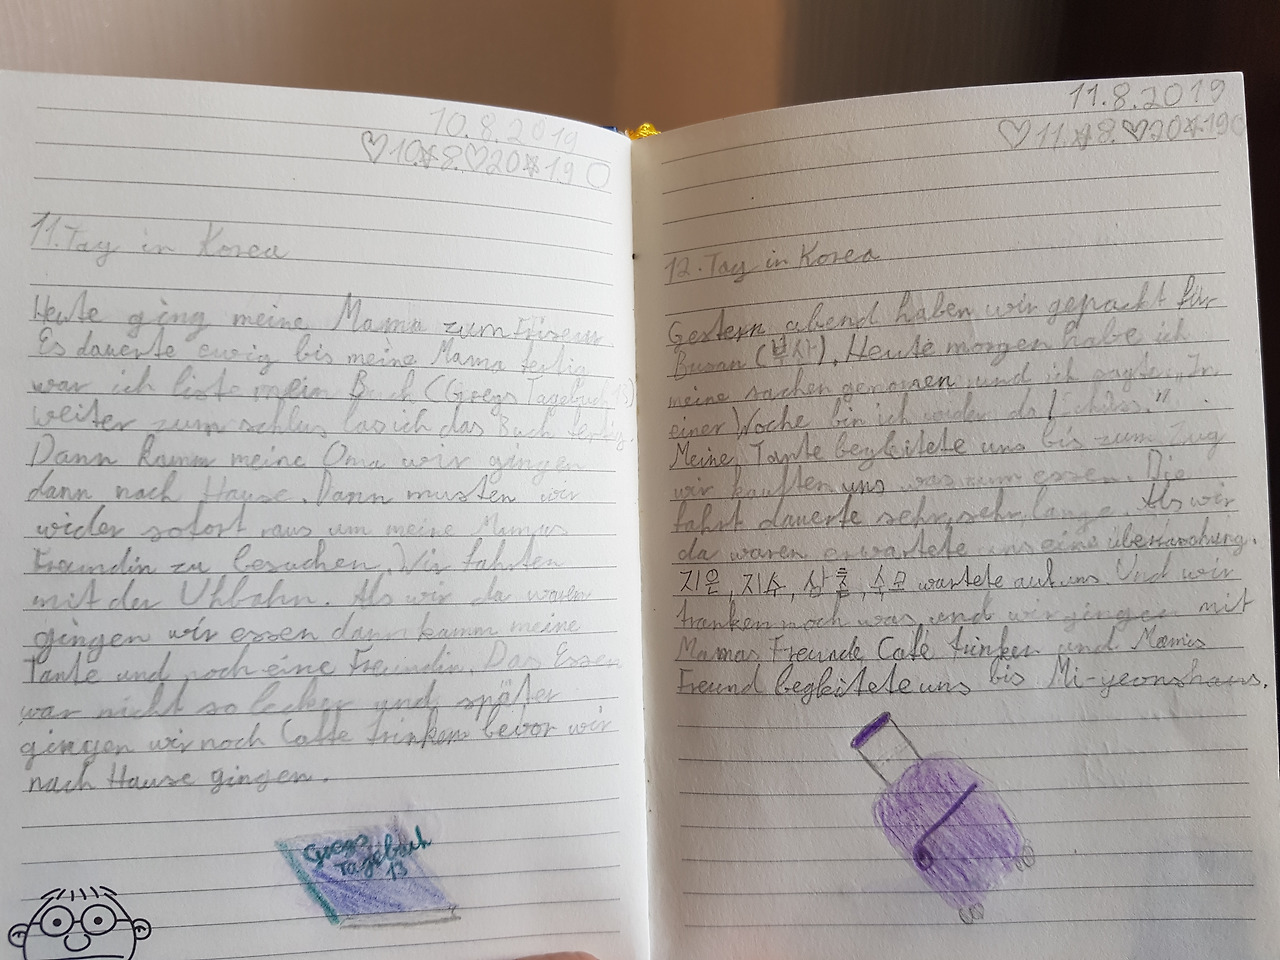 10.8.2019
♡10☆8.♡20☆19
11. Tag in Korea
Heute ging meine Mama zum Friseur
Es dauerte ewig bis meine Mama fertig
war ich liste mein Buch (Gregs Tagebuch 13)
weiter zum schlus las ich das Buch fertig.
Dann kamm meine Oma wir gingen
dann nach Hause. Dann musten wir
wider sofort raus um meine Mamas
Freundin zu besuchen. Wir fahrten
mit der Uhbahn. Als wir da waren
gingen wir essen dann kamm meine
Tante und noch eine Freundin. Das Essen
war nicht so lecker und später
gingen wir noch Caffe trinken bevor wir
nach Hause gingen.
Gregs
Tagebuch
13
11.8.2019
♡11.☆8.♡20☆19
12. Tag in Korea
Gestern abend haben wir gepackt für
Busan (부산). Heute morgen habe ich
meine sachen genommen und ich sagte „In
einer Woche bin ich wider da!
Meine Tante begleitete uns bis zum Zug
wir kauften uns was zum essen. Die
fahrt dauerte sehr, sehr, lange. Als wir
da waren erwartete uns eine überraschung.
지은, 지수, wartete auf uns. Und wir
tranken noch was und wir gingen mit
Mamas Freunde Café trinken und Mamis
Freund begleitete uns bis Mi-yeonshaus.